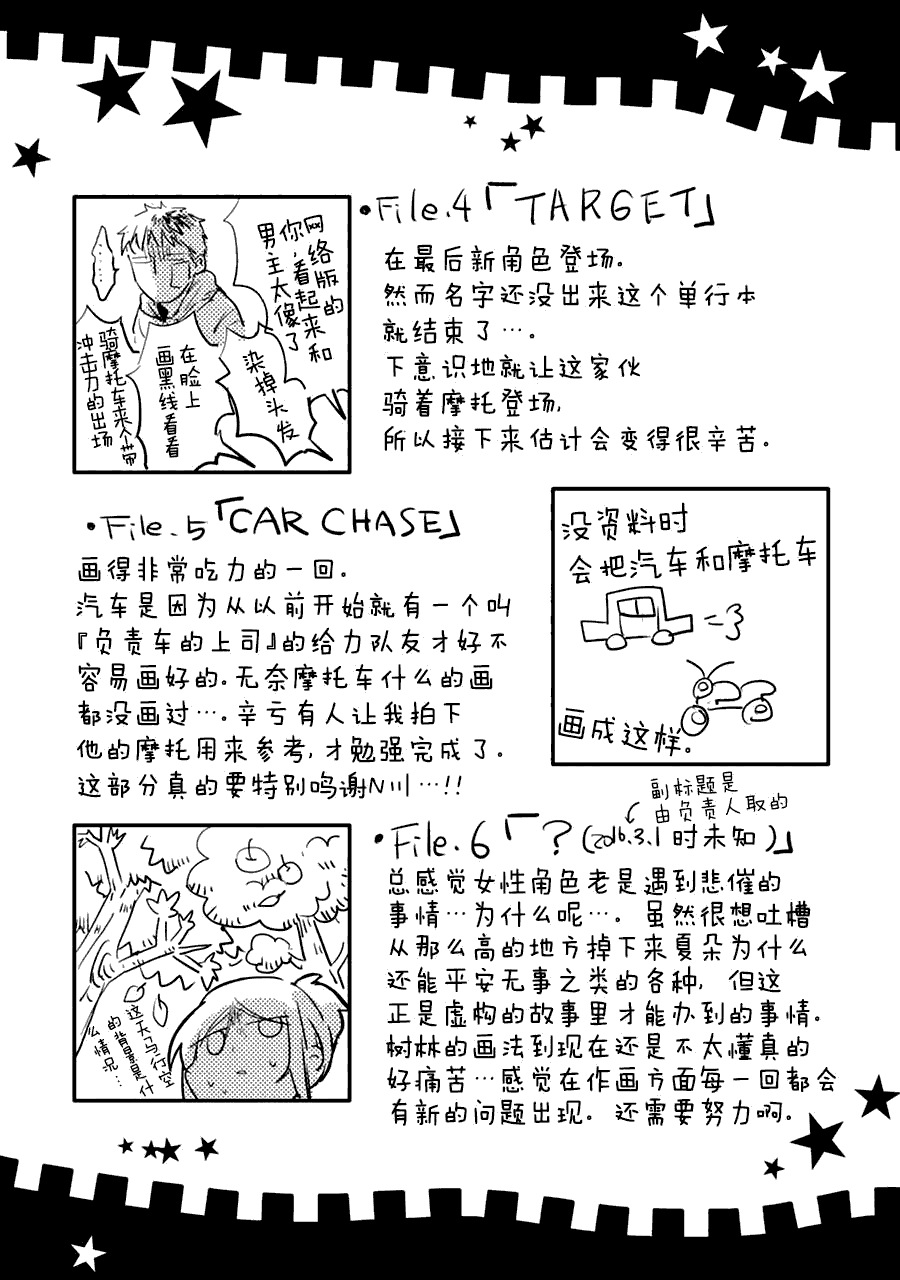 •File.4「TARGET」
在最后新角色登场.
然而名字还没出来这个单行本
就结束了….
下意识地就让这家伙
骑着摩托登场,
所以接下来估计会变得很辛苦.
网络版的
你,看起来和
男主太像了
……
染掉头发
在脸上
画黑线看看
骑摩托车来个带
冲击力的出场
•File.5「CAR CHASE」
画得非常吃力的一回.
汽车是因为从以前开始就有一个叫
『负责车的上司』的给力队友才好不
容易画好的.无奈摩托车什么的画
都没画过….辛亏有人让我拍下
他的摩托用来参考,才勉强完成了.
这部分真的要特别鸣谢N川…!!
没资料时
会把汽车和摩托车
画成这样.
副标题是
由负责人取的
•File.6「?(2016.3.1时未知)」
总感觉女性角色老是遇到悲催的
事情…为什么呢….虽然很想吐槽
从那么高的地方掉下来夏朵为什么
还能平安无事之类的各种,但这
正是虚构的故事里才能办到的事情.
树林的画法到现在还是不太懂真的
好痛苦…感觉在作画方面每一回都会
有新的问题出现.还需要努力啊.
这天马行空
的背景是什
么情况…